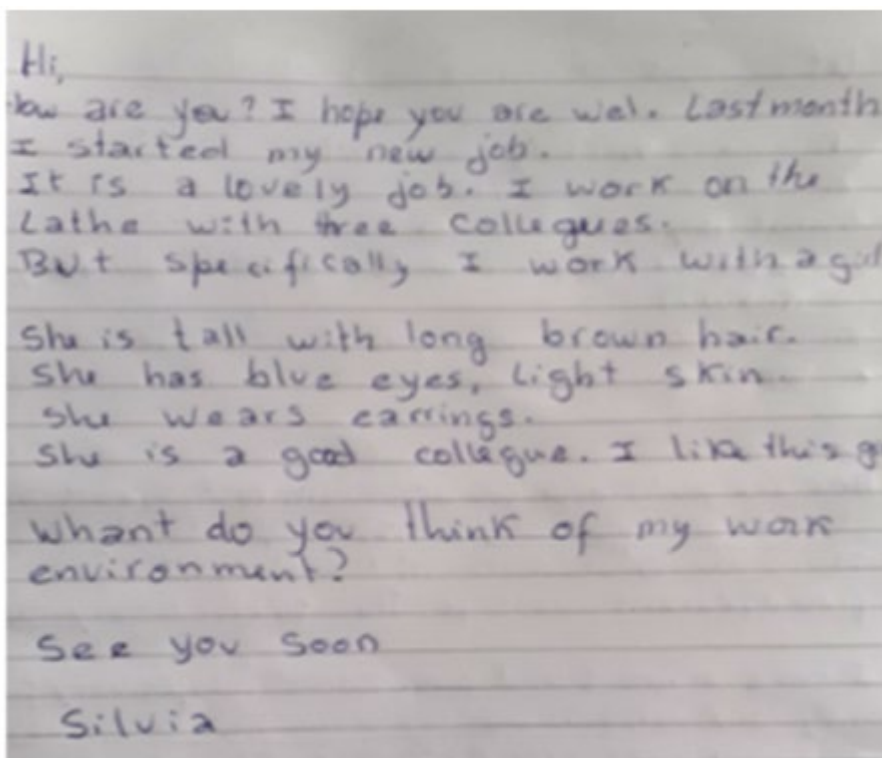 Hi,
How are you? I hope you are wel. Last month
I started my new job.
It is a lovely job. I work on the
Lathe with three collegues.
But specifically I work with a girl
She is tall with long brown hair.
She has blue eyes, Light skin.
She wears earrings.
She is a good collegue. I like this g
Whant do you think of my work
environment?
See you soon
Silvia